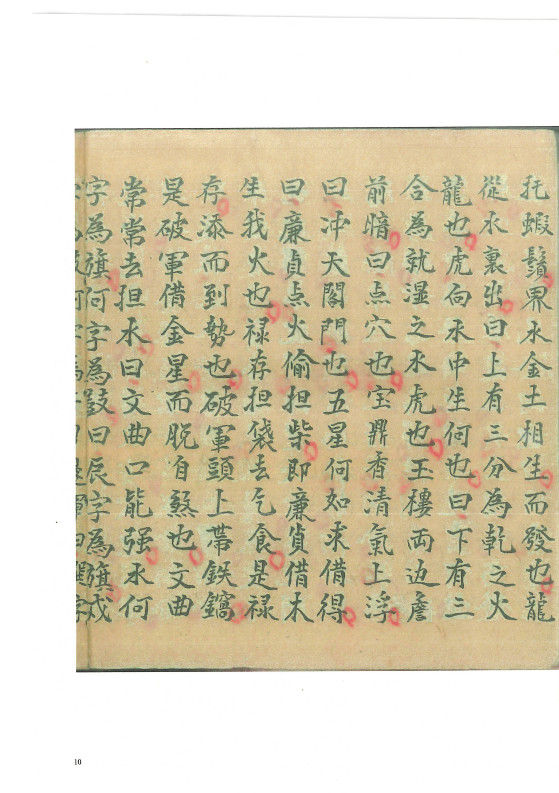 托蝦鬚界水金土相生而發也龍
從水裏出曰上有三分為乾之火
龍也虎向水中生何也曰下有三
合為就湿之水虎也玉樓両边詹
前暗曰点穴也宝鼎香清氣上浮
曰冲天閣門也五星何如求借得
曰廉貞点火偷担柴即廉貞借木
生我火也禄存担袋去乞食是禄
存添而到勢也破軍頭上帶鉄鍋
是破軍借金星而脱自煞也文曲
常常去担水曰文曲口能强水何
字為旗何字為鼓曰辰字為旗戊
10